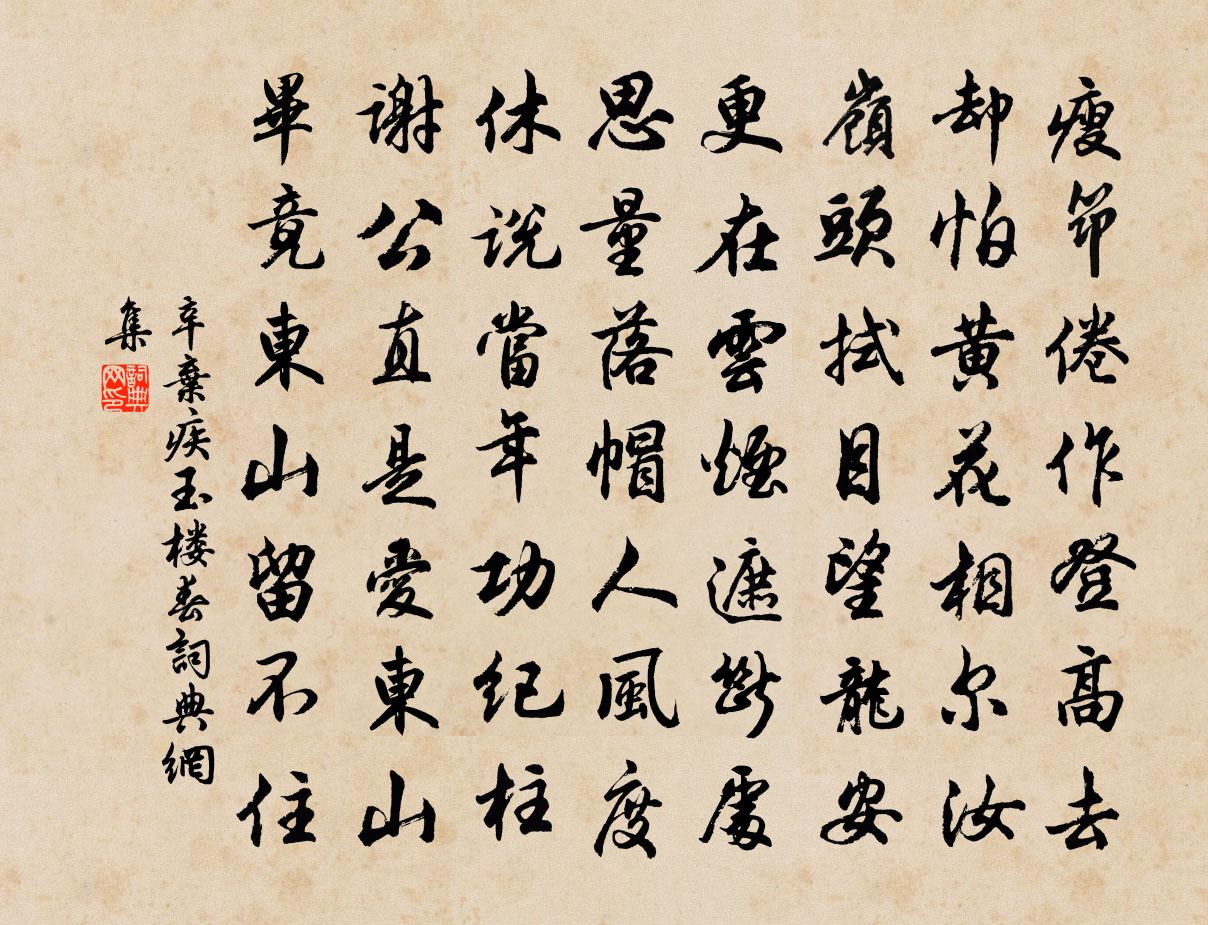 瘦筇倦作登高去
却怕黄花相尔汝
嶺頭拭目望龍安
更在雲煙遮斷處
思量落帽人風度
休説當年功紀柱
謝公直是愛東山
畢竟東山留不住
辛棄疾玉楼春詞典網
集
詞典
网印